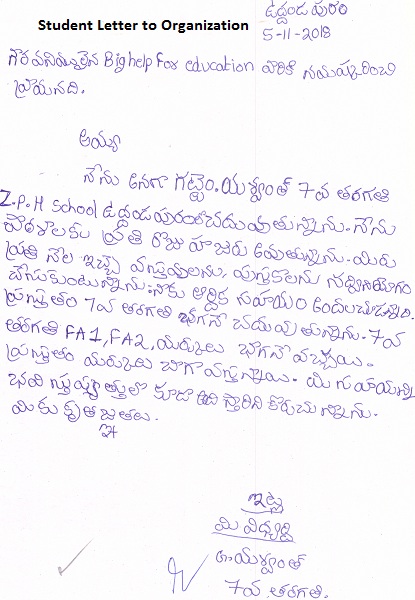 Student Letter to Organization
ఉద్దండపురం
5-11-2018
గౌరవనియ్యులైన Big help For education వారికి నమస్కరించి
వ్రాయునది.
అయ్యా
నేను అనగా గట్టెం.యశ్వంత్ 7వ తరగతి
Z.P.H School ఉద్దండపురంలో చదువుతున్నాను. నేను
పాఠశాలకు ప్రతి రోజు హాజరు అవుతున్నాను. మీరు
ప్రతి నెల ఇచ్చే వస్తువులను, పుస్తకాలను సద్వినియోగం
చేసుకుంటున్నాను. నాకు ఆర్థిక సహాయం అందులచున్నది.
ప్రస్తుతం 7వ తరగతి బాగానే చదువుతున్నాను. 7వ
తరగతి FA1, FA2, మర్కులు బాగానే వచ్చాయి.
ప్రస్తుతం మర్కులు బాగా వస్తున్నాయి. మి సహాయాన్ని
భవిష్యత్తులో కూడా ఇది స్తారని కోరుచున్నాను.
మికు కృతజ్ఞతలు.
ఇట్ల
మి విద్యార్థి
గ.యశ్వంత్
7వ తరగతి.